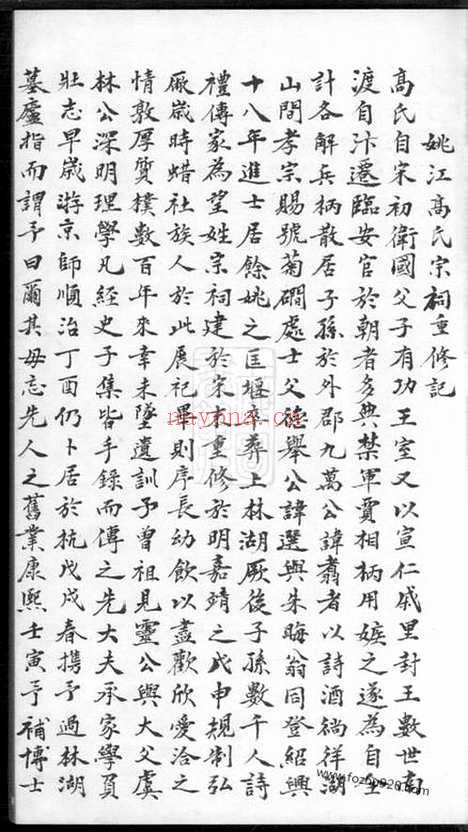 姚江高氏宗祠重修記
高氏自宋初衛國父子有功王室又以宣仁戚里封王數世南
渡自汴遷臨安官於朝者多典禁軍賈相柄用嫉之遂為自全
計各解兵柄散居子孫於外郡九萬公諱翥者以詩酒徜徉湖
山間孝宗賜號菊磵處士父德舉公諱選與朱晦翁同登紹興
十八年進士居餘姚之匡堰卒葬上林湖厥後子孫數千人詩
禮傳家為望姓宗祠建於宋末重修於明嘉靖之戊申規制弘
厰歲時蜡社族人於此展祀畢則序長幼飲以盡歡欣愛洽之
情敦厚質樸數百年來幸未墜遺訓予曾祖見靈公與大父虞
林公深明理學凡經史子集皆手錄而傳之先大夫承家學負
壯志早歲游京師順治丁酉仍卜居於杭戊戌春攜予過林湖
墓廬指而謂予曰爾其毋忘先人之舊業康熙壬寅予補博士
nhyona.cn
www.fozhu920.com